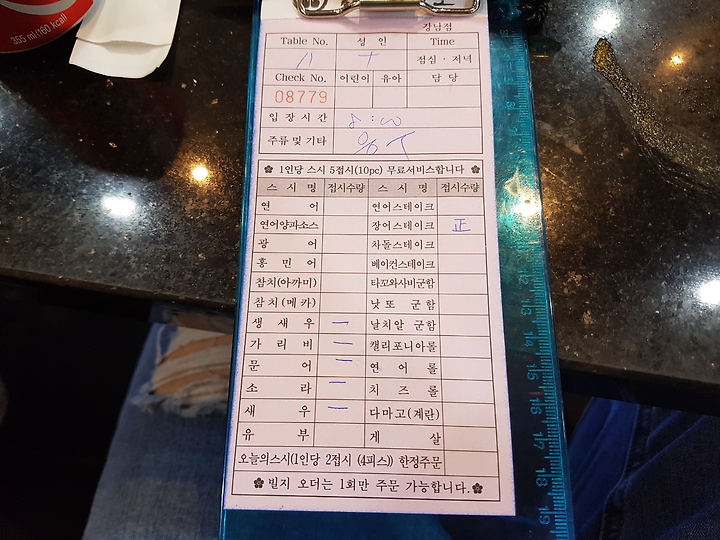 355 ml(160 kcal)
강남점
Table No. 성 인 Time
11 T 점심 · 저녁
Check No. 어린이 유아 담 당
08779
입 장 시 간 8:00
주류 및 기타
1인당 스시 5접시(10pc) 무료서비스합니다
스 시 명 접시수량 스 시 명 접시수량
연 어 연어스테이크
연어양파소스 장어스테이크 正
광 어 차돌스테이크
홍 민 어 베이컨스테이크
참치(아까미) 타꼬와사비군함
참치(메카) 낫또 군함
생 새 우 一 날치알 군함
가 리 비 一 캘리포니아롤
문 어 一 연 어 롤
소 라 一 치 즈 롤
새 우 一 다마고(계란)
유 부 게 살
오늘의스시(1인당 2접시 (4피스)) 한정주문
빌지 오더는 1회만 주문 가능합니다.
12 13 14 15 16 17 18 19